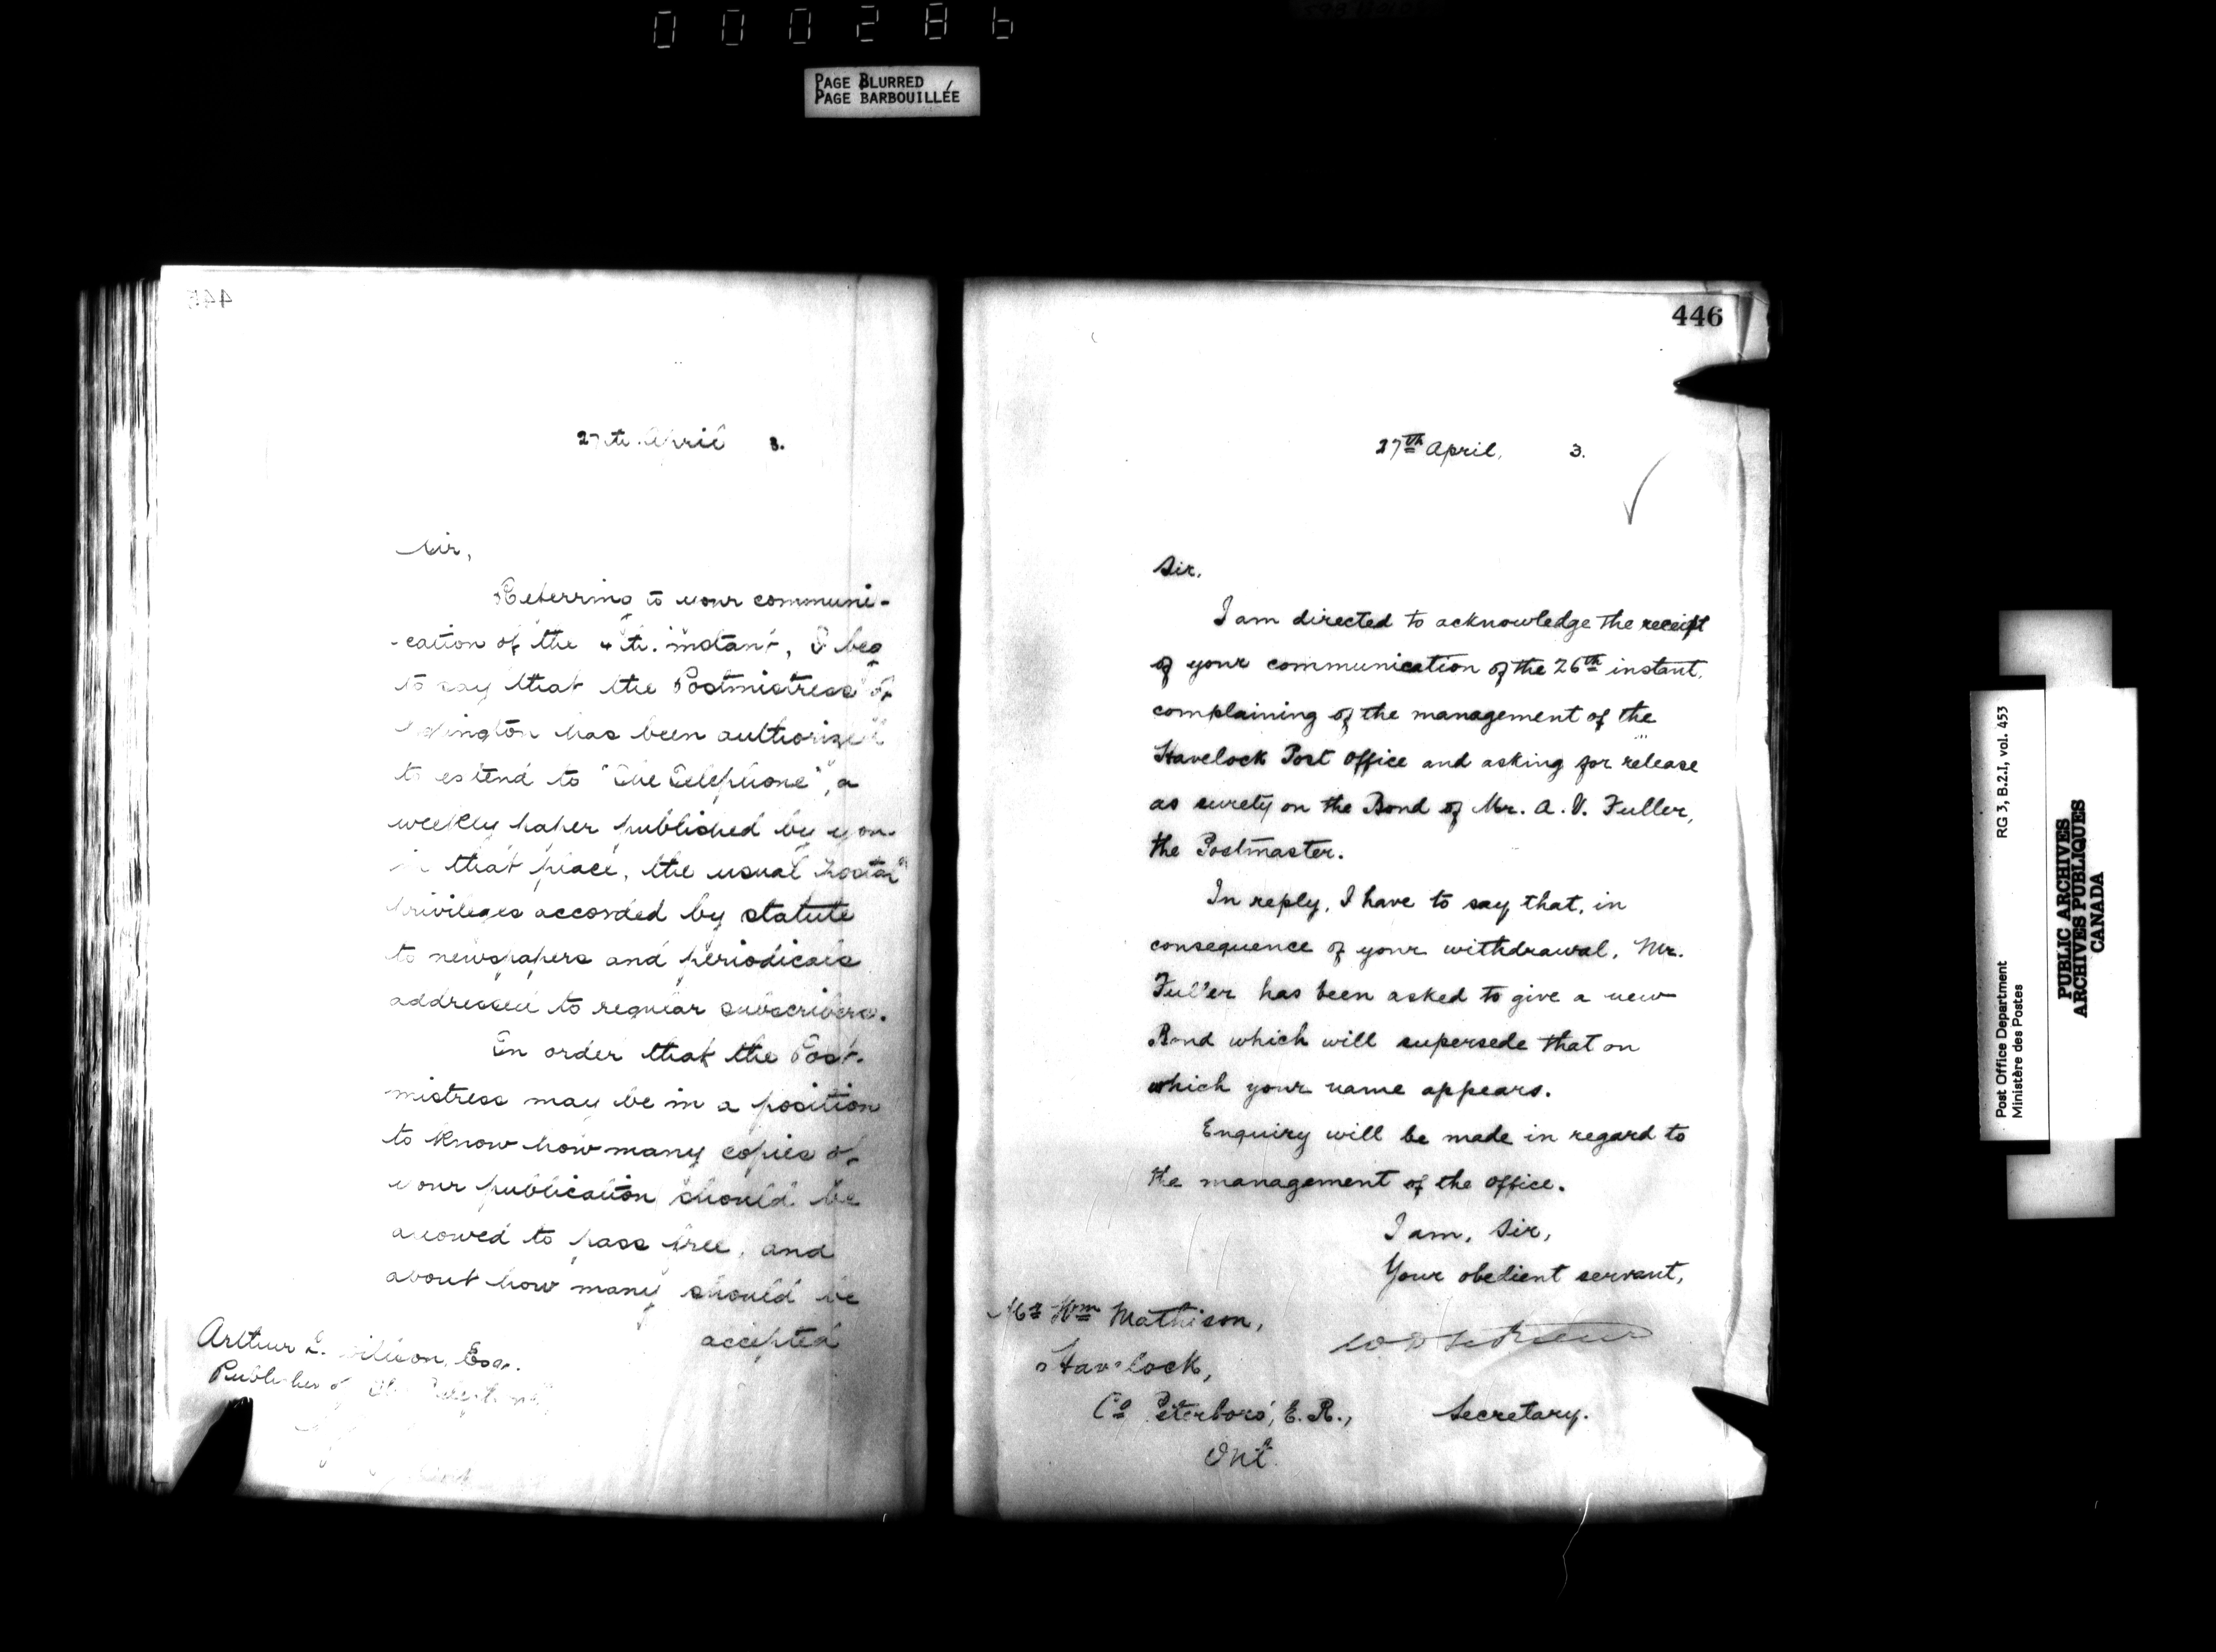 000286
PAGE BLURRED
PAGE BARBOUILLÉE
445
27th April 3.
Sir,
Referring to your communi-
-cation of the 4th. instant, I beg
to say that the Postmistress of
has been authorized
to extend to "The Telephone", a
weekly paper published by you
in that place, the usual postal
privileges accorded by statute
to newspapers and periodicals
addressed to regular subscribers.
In order that the Post-
mistress may be in a position
to know how many copies of
your publication should be
allowed to pass free, and
about how many should be
accepted
Arthur Esqr.
Publisher of The Telephone
446
27th April, 3.
Sir,
I am directed to acknowledge the receipt
of your communication of the 26th instant,
complaining of the management of the
Havelock Post Office and asking for release
as surety on the Bond of Mr. A. V. Fuller,
the Postmaster.
In reply, I have to say that, in
consequence of your withdrawal, Mr.
Fuller has been asked to give a new
Bond which will supersede that on
which your name appears.
Enquiry will be made in regard to
the management of the office.
I am, Sir,
Your obedient servant,
Mr Wm Mathison,
Havelock,
Co Peterboro', E. R.,
Ont
Secretary.
Post Office Department
Ministère des Postes
RG 3, B.2.I, vol. 453
PUBLIC ARCHIVES
ARCHIVES PUBLIQUES
CANADA